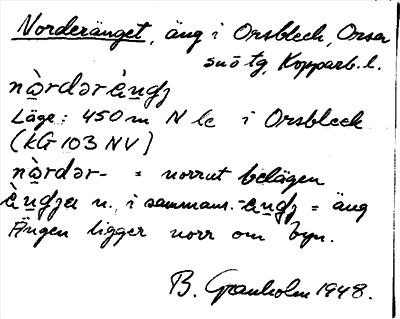 Norderänget, äng i Orsbleck, Orsa
snötg, Kopparb. l.
nò̱rdərèṉgʒ
Läge: 450 m N K i Orsbleck
(KG 103 NV)
nò̱rdər- = norrut belägen
èṉgʒa n., i sammans. -èṉgʒ = äng
Ängen ligger norr om byn.
B. Granholm 1948.